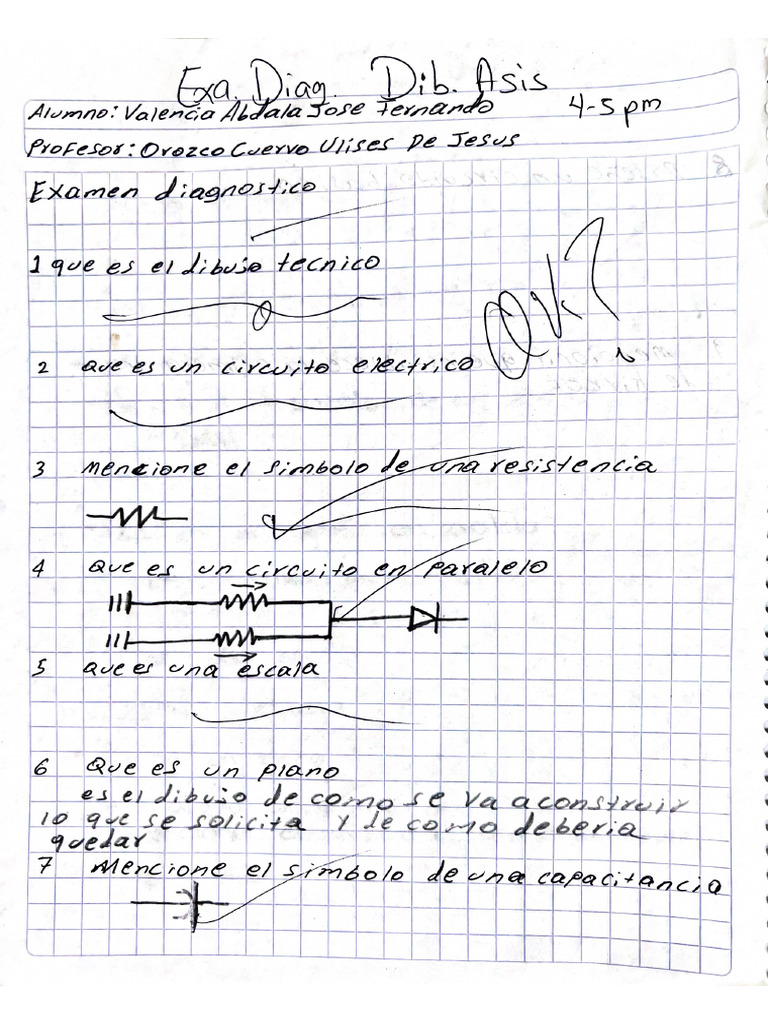 Exa. Diag. Dib. Asis
Alumno: Valencia Abdala Jose Fernando 4-5 pm
Profesor: Orozco Cuervo Ulises De Jesus
Examen diagnostico
1 que es el dibujo tecnico
OK?
2 que es un circuito electrico
3 Mencione el simbolo de una resistencia
4 Que es un circuito en paralelo
5 Que es una escala
6 Que es un plano
es el dibujo de como se va a construir
lo que se solicita y de como deberia
quedar
7 Mencione el simbolo de una capacitancia